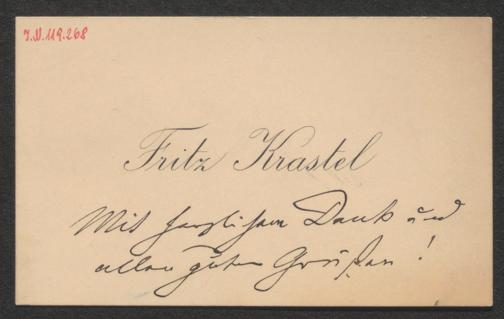 J.N.119.268
Fritz Krastel
Mit herzlichem Dank und
allen guten Grüßen!